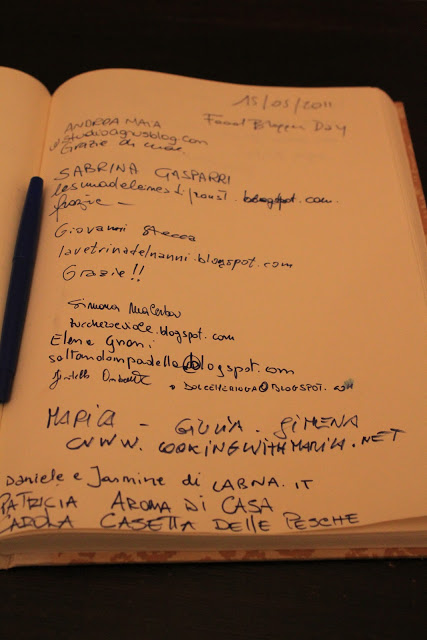 15/05/2011
Food Blogger Day
ANDREA MAIA
studioagrusblog.com
GRAZIE di cuore.
SABRINA GASPARRI
lesmadeleinesdiproust.blogspot.com
Grazie -
Giovanni Stecca
lavetrinadelnanni.blogspot.com
Grazie!!
Simona
zuccheroeviole.blogspot.com
Elena
saltandoinpadella.blogspot.com
BLOGSPOT.COM
MARICA - GIULIA - SIMENA
WWW.COOKINGWITHMARICA.NET
Daniele e Jasmine di LABNA.IT
PATRICIA AROMA DI CASA
CAROLA CASETTA DELLE PESCHE